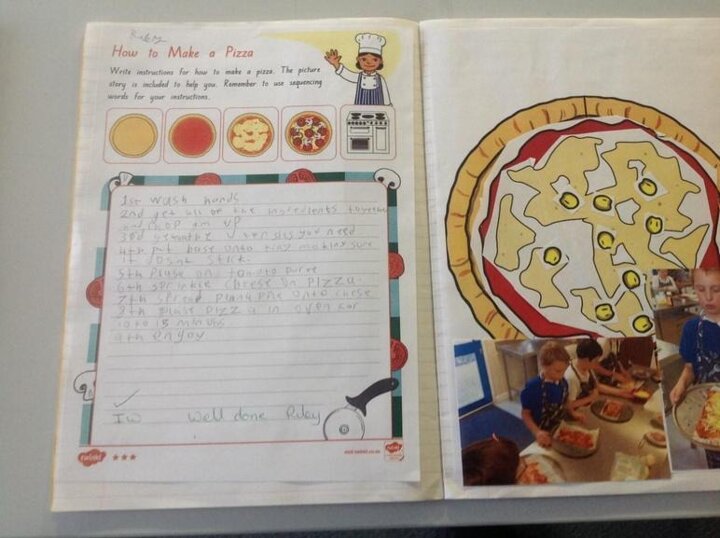 How to Make a Pizza
Write instructions for how to make a pizza. The picture
story is included to help you. Remember to use sequencing
words for your instructions.
1st wash hands
2nd get all of the ingredients together
and chop em up
3rd you need
4th put base onto tray making sure
it dosnt stick.
5th Plase on tomato
6th sprinkle cheese on Pizza.
7th spread onto
8th Plase Pizza in oven for
10 to 15
9th enjoy
IW Well done
twinkl